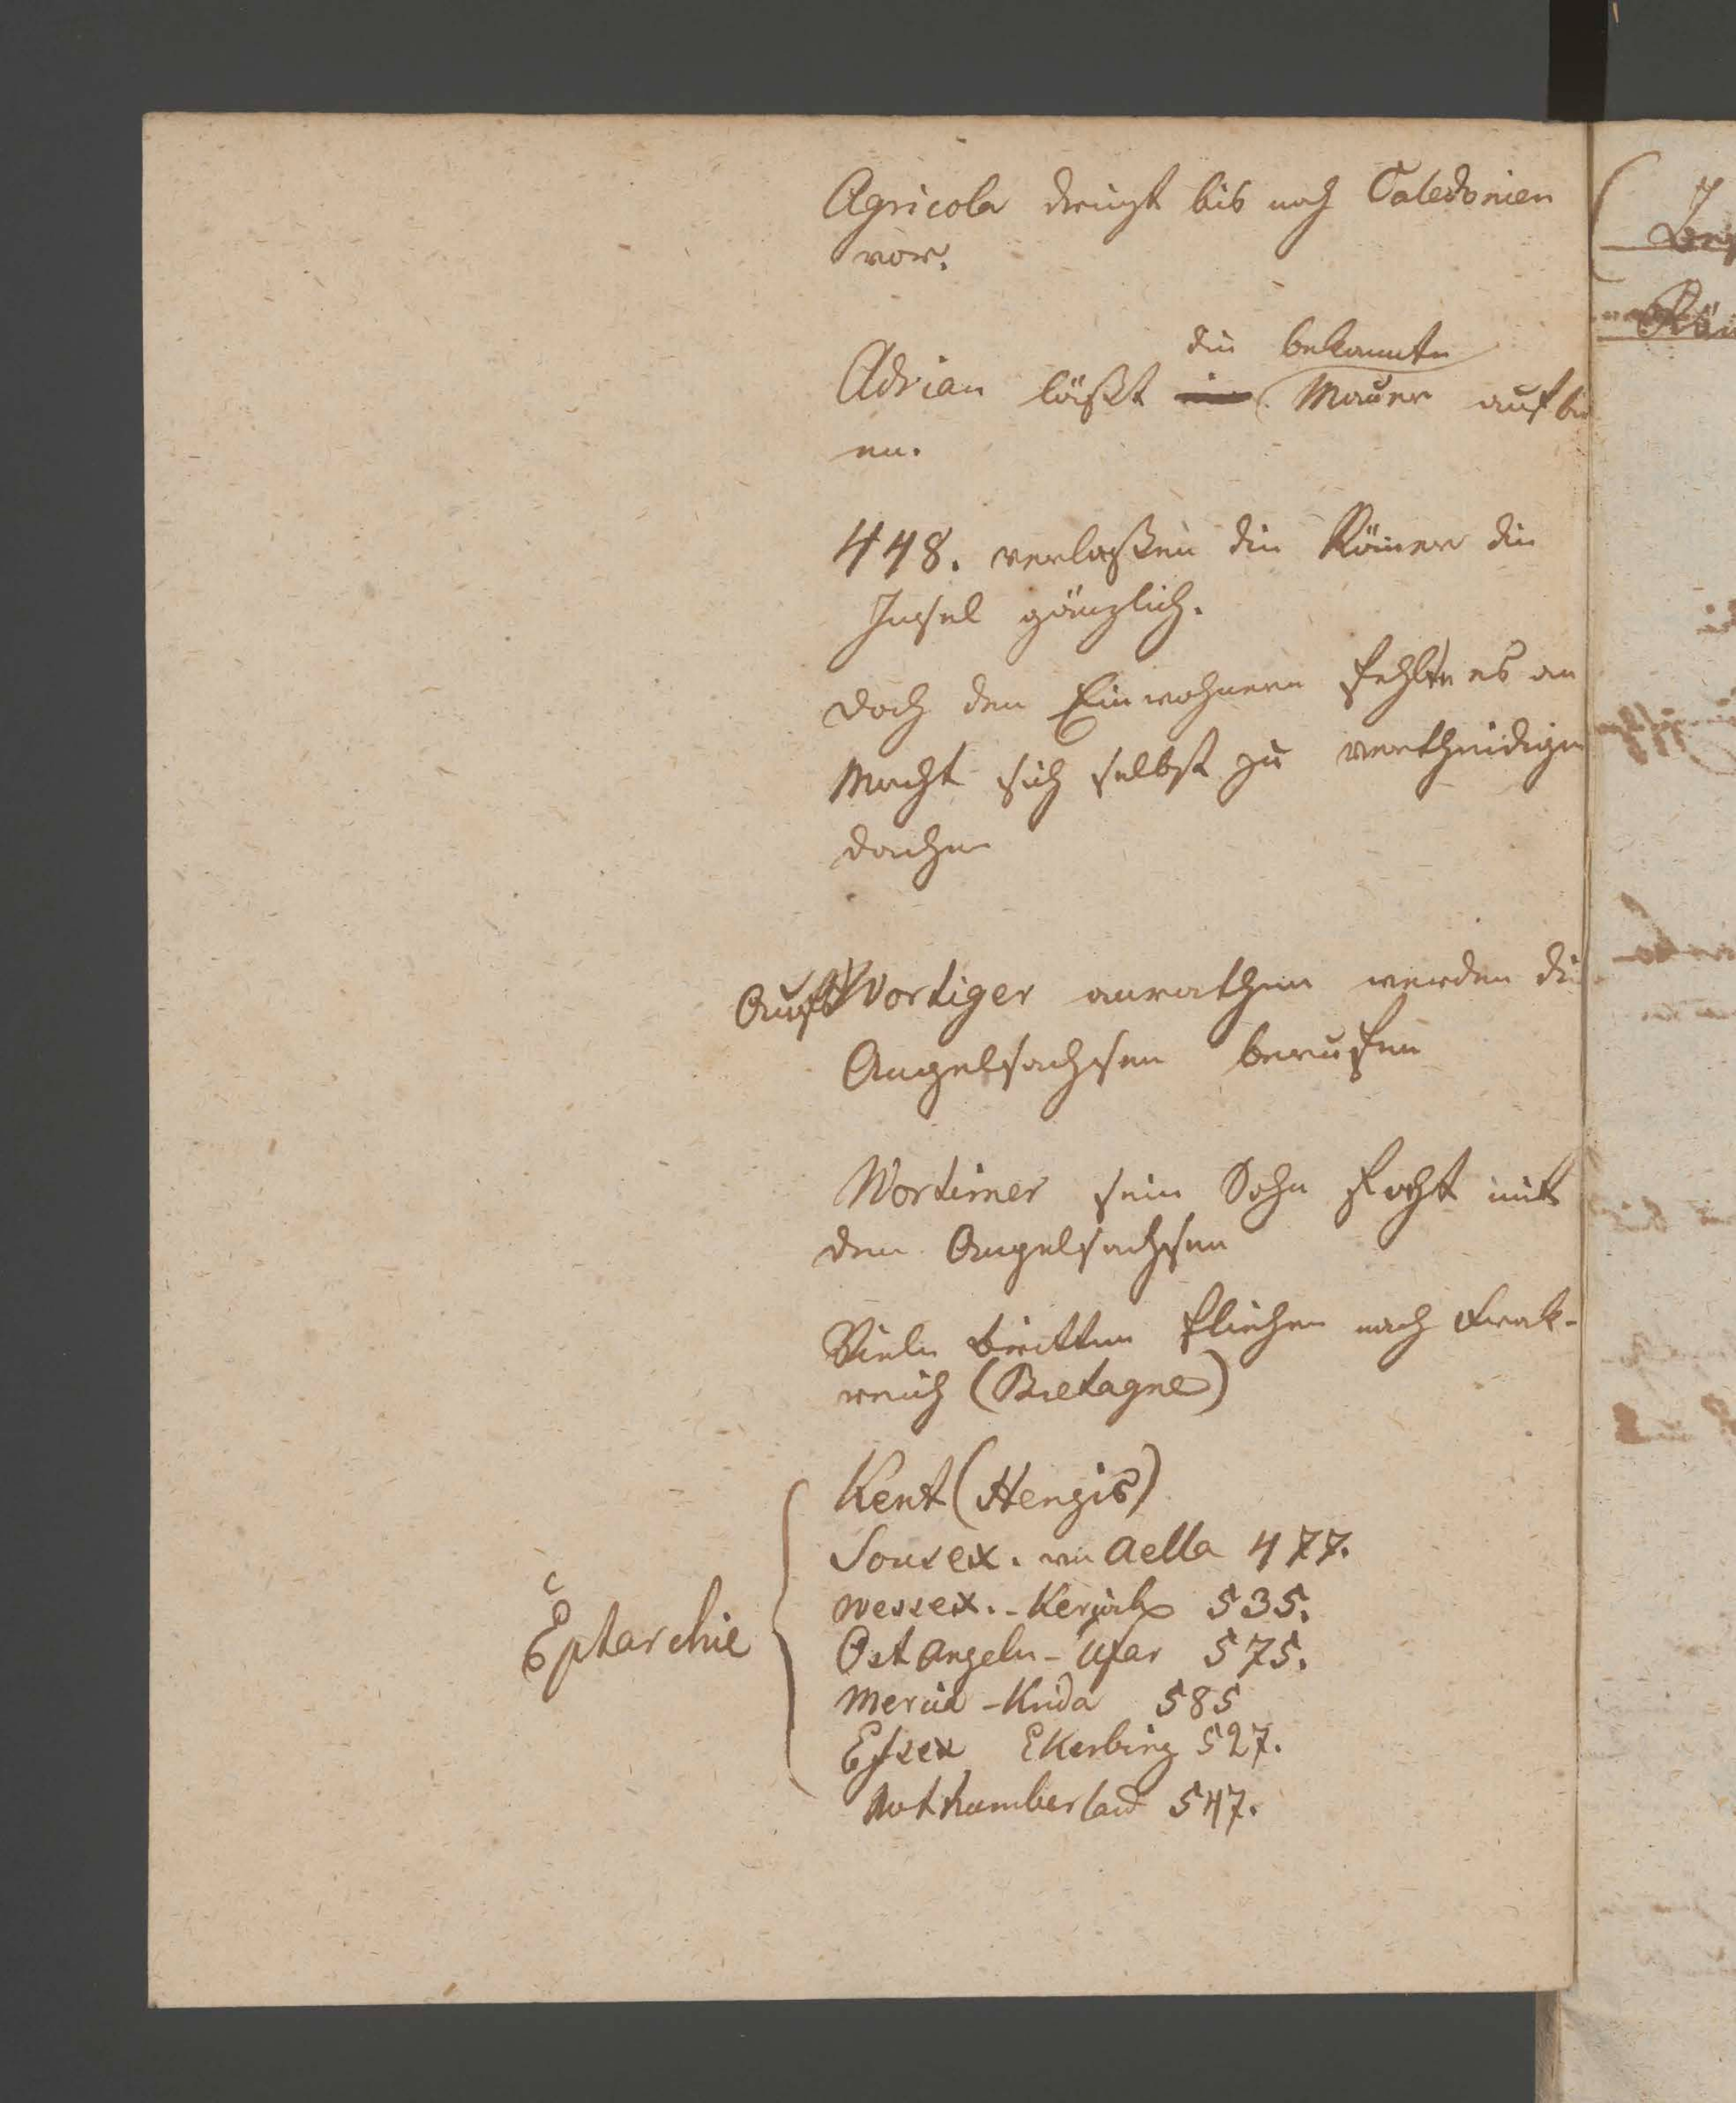 Agricola dringt bis nach Caledonien
vor.
die bekannte
Adrian läßt Mauer aufbau
en.
448. verlaßen die Römer die
Insel gänzlich.
doch den Einwohnern fehlte es an
Macht sich selbst zu vertheidigen
daher
Auf Wortiger anrathen werden die
Angelsachsen berufen
Wortimer sein Sohn focht mit
den Angelsachsen
Viele britten fliehen nach Frak-
reich (Bretagne)
Kent (Hengis)
Sousex. von Aella 477.
Wessex. - 535.
Eptarchie
Ost Angeln - Ufar 575.
Mercia - Krida 585
Essex Ekerbing 527.
Nothumberland 547.